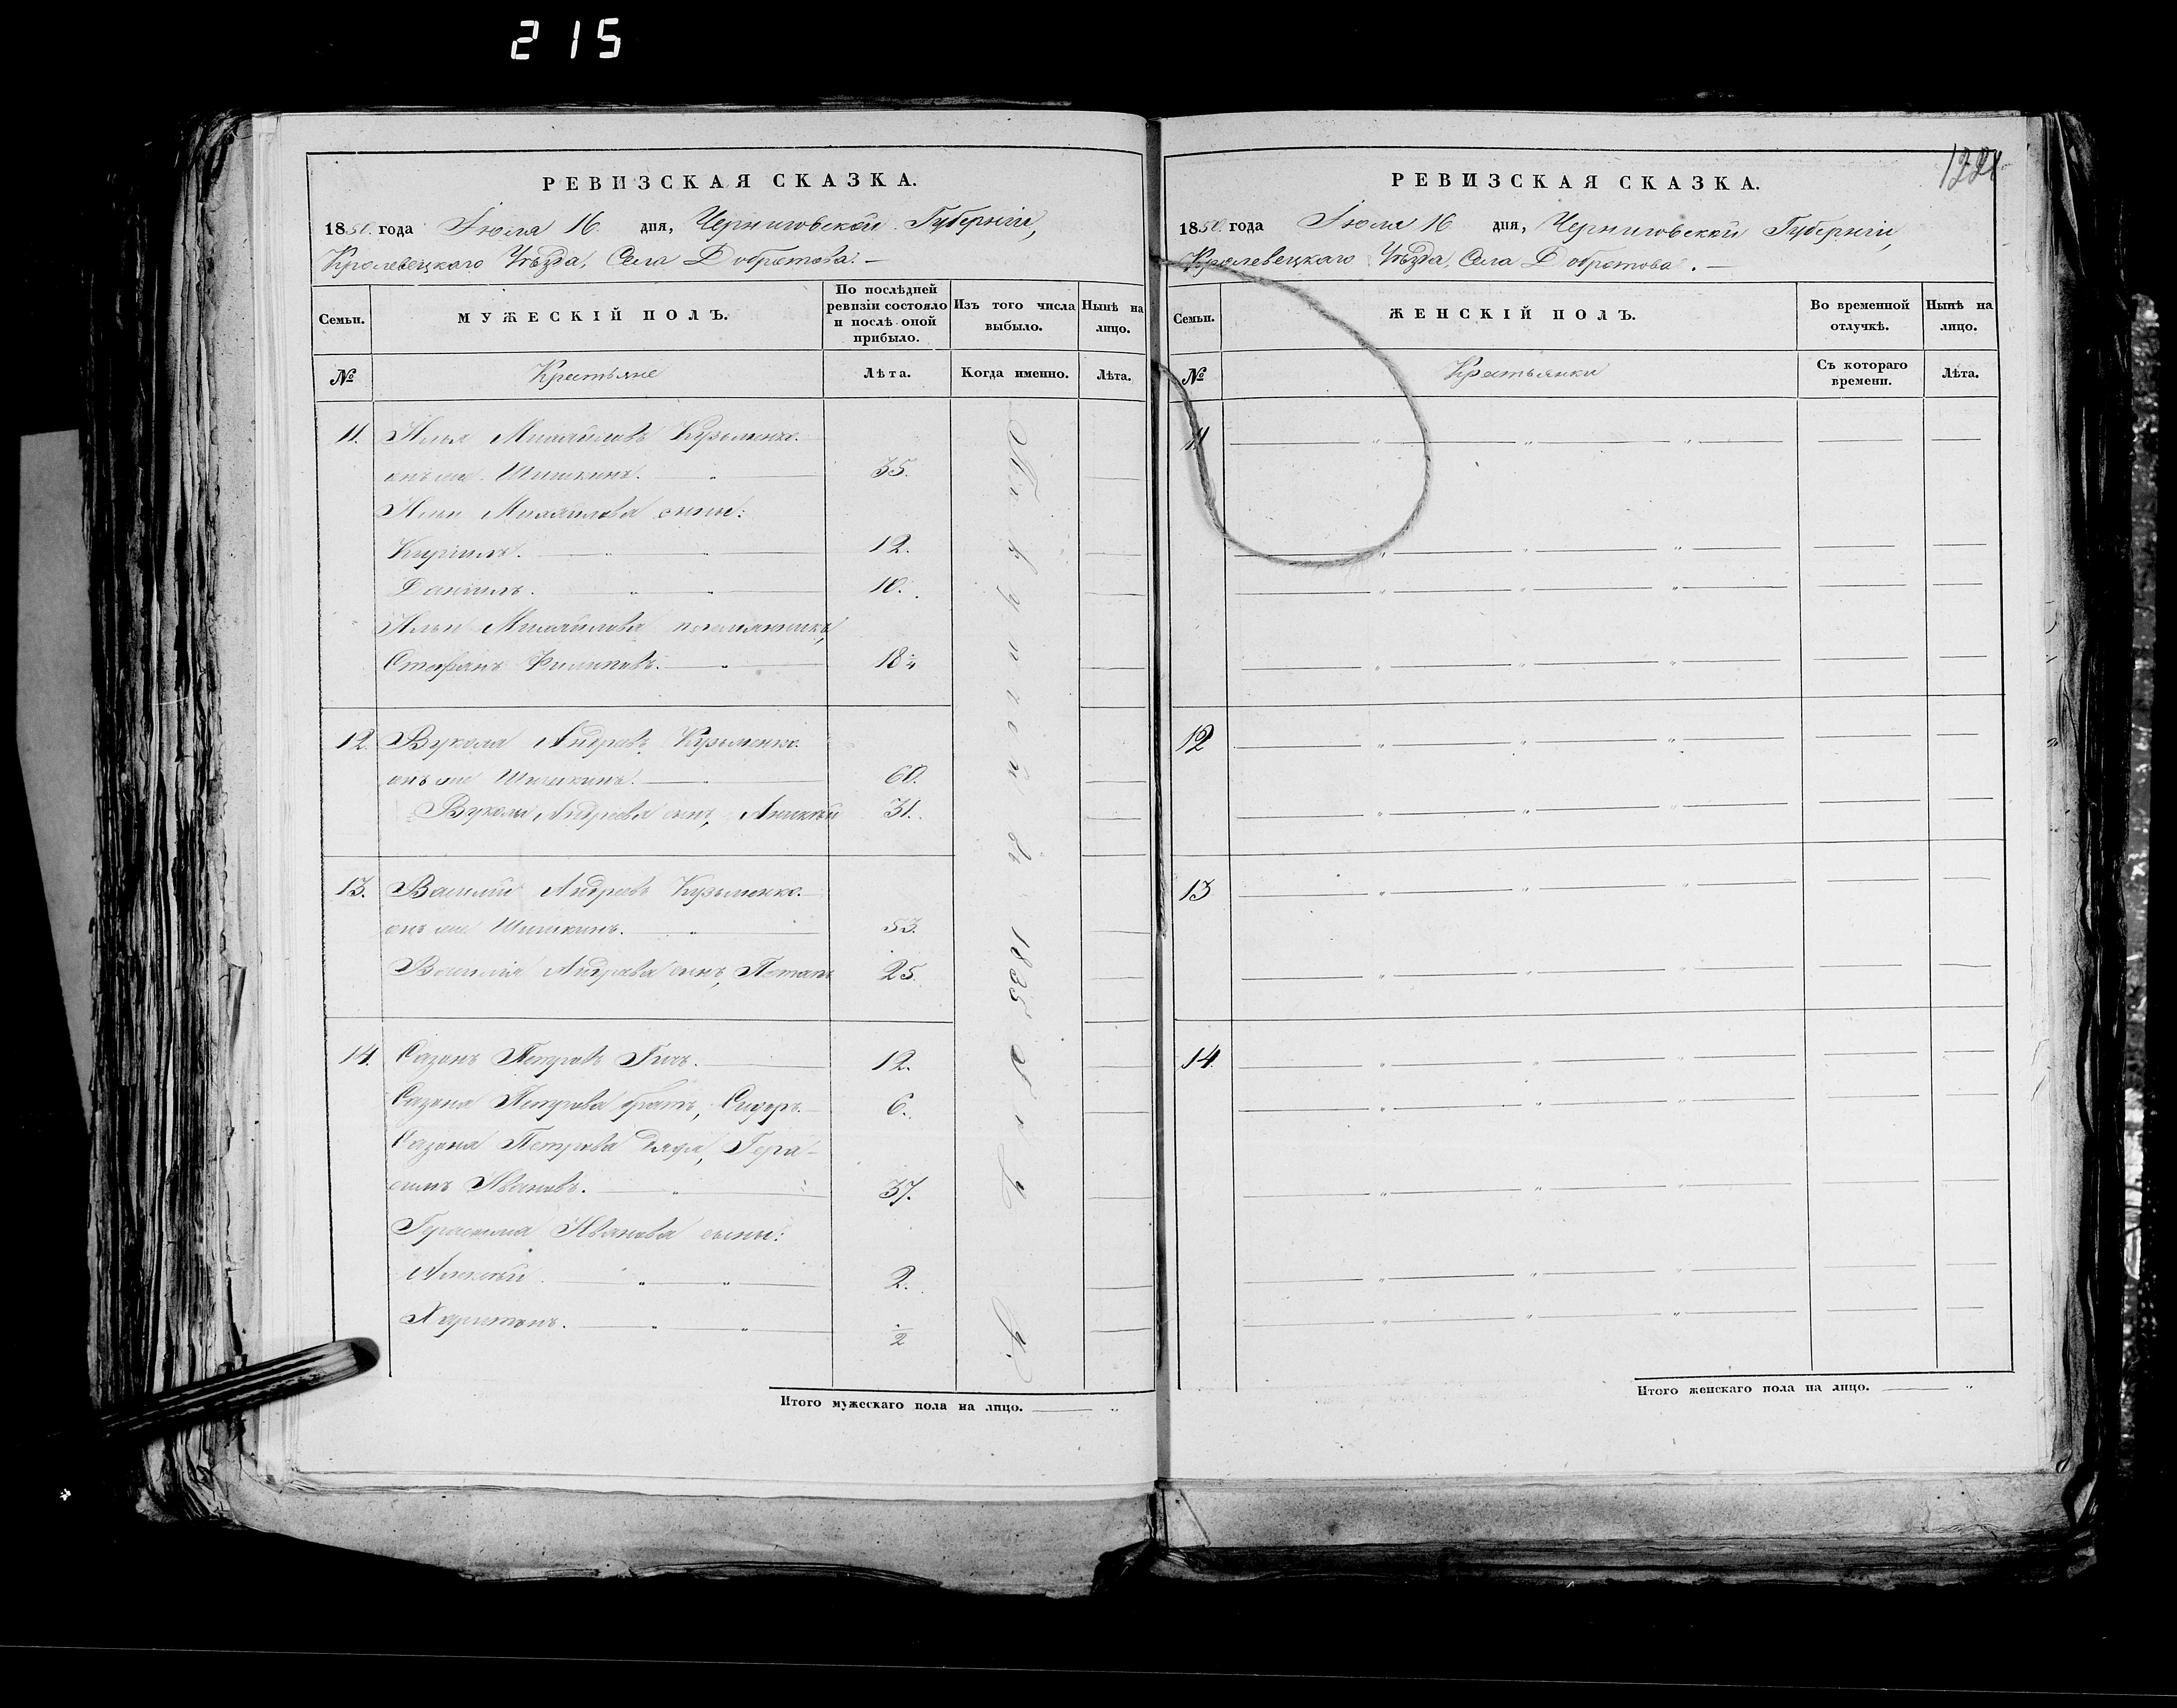 215
РЕВИЗСКАЯ СКАЗКА.
1850 года Іюля 16 дня, Черниговской Губерніи,
Кролевецкаго Уѣзда, Села Добротова.
Семьи.
МУЖЕСКІЙ ПОЛЪ.
По послѣдней ревизіи состояло и послѣ оной прибыло.
Изъ того числа выбыло.
Нынѣ на лицо.
№
Крестьяне
Лѣта.
Когда именно.
Лѣта.
11. Илья Михайловъ Кузьменко.
онъ же Шишкинъ. 35.
Ильи Михайлова сыны:
Кирилъ. 12.
Даніилъ. 10.
Ильи Михайлова племянникъ,
Стефанъ Филиповъ. 18
12. Вукола Андреевъ Кузьменко.
онъ же Шишкинъ. 60.
Вуколы Андреева сынъ, 31.
13. Василій Андреевъ Кузьменко.
онъ же Шишкинъ. 53.
Василія Андреева сынъ, Потапъ 25.
14. Сазонъ Петровъ 12.
Сазона Петрова братъ, Сидоръ. 6.
Сазона Петрова дядя, Гера-
симъ Ивановъ. 37.
Герасима Иванова сыны:
Алексѣй 2.
Харитонъ. ½
въ 1835
Итого мужескаго пола на лицо.
1228
РЕВИЗСКАЯ СКАЗКА.
1850 года Іюля 16 дня, Черниговской Губерніи,
Кролевецкаго Уѣзда, Села Добротова.
Семьи.
ЖЕНСКІЙ ПОЛЪ.
Во временной отлучкѣ.
Нынѣ на лицо.
№
Крестьянки
Съ котораго времени.
Лѣта.
11
12
13
14.
Итого женскаго пола на лицо.